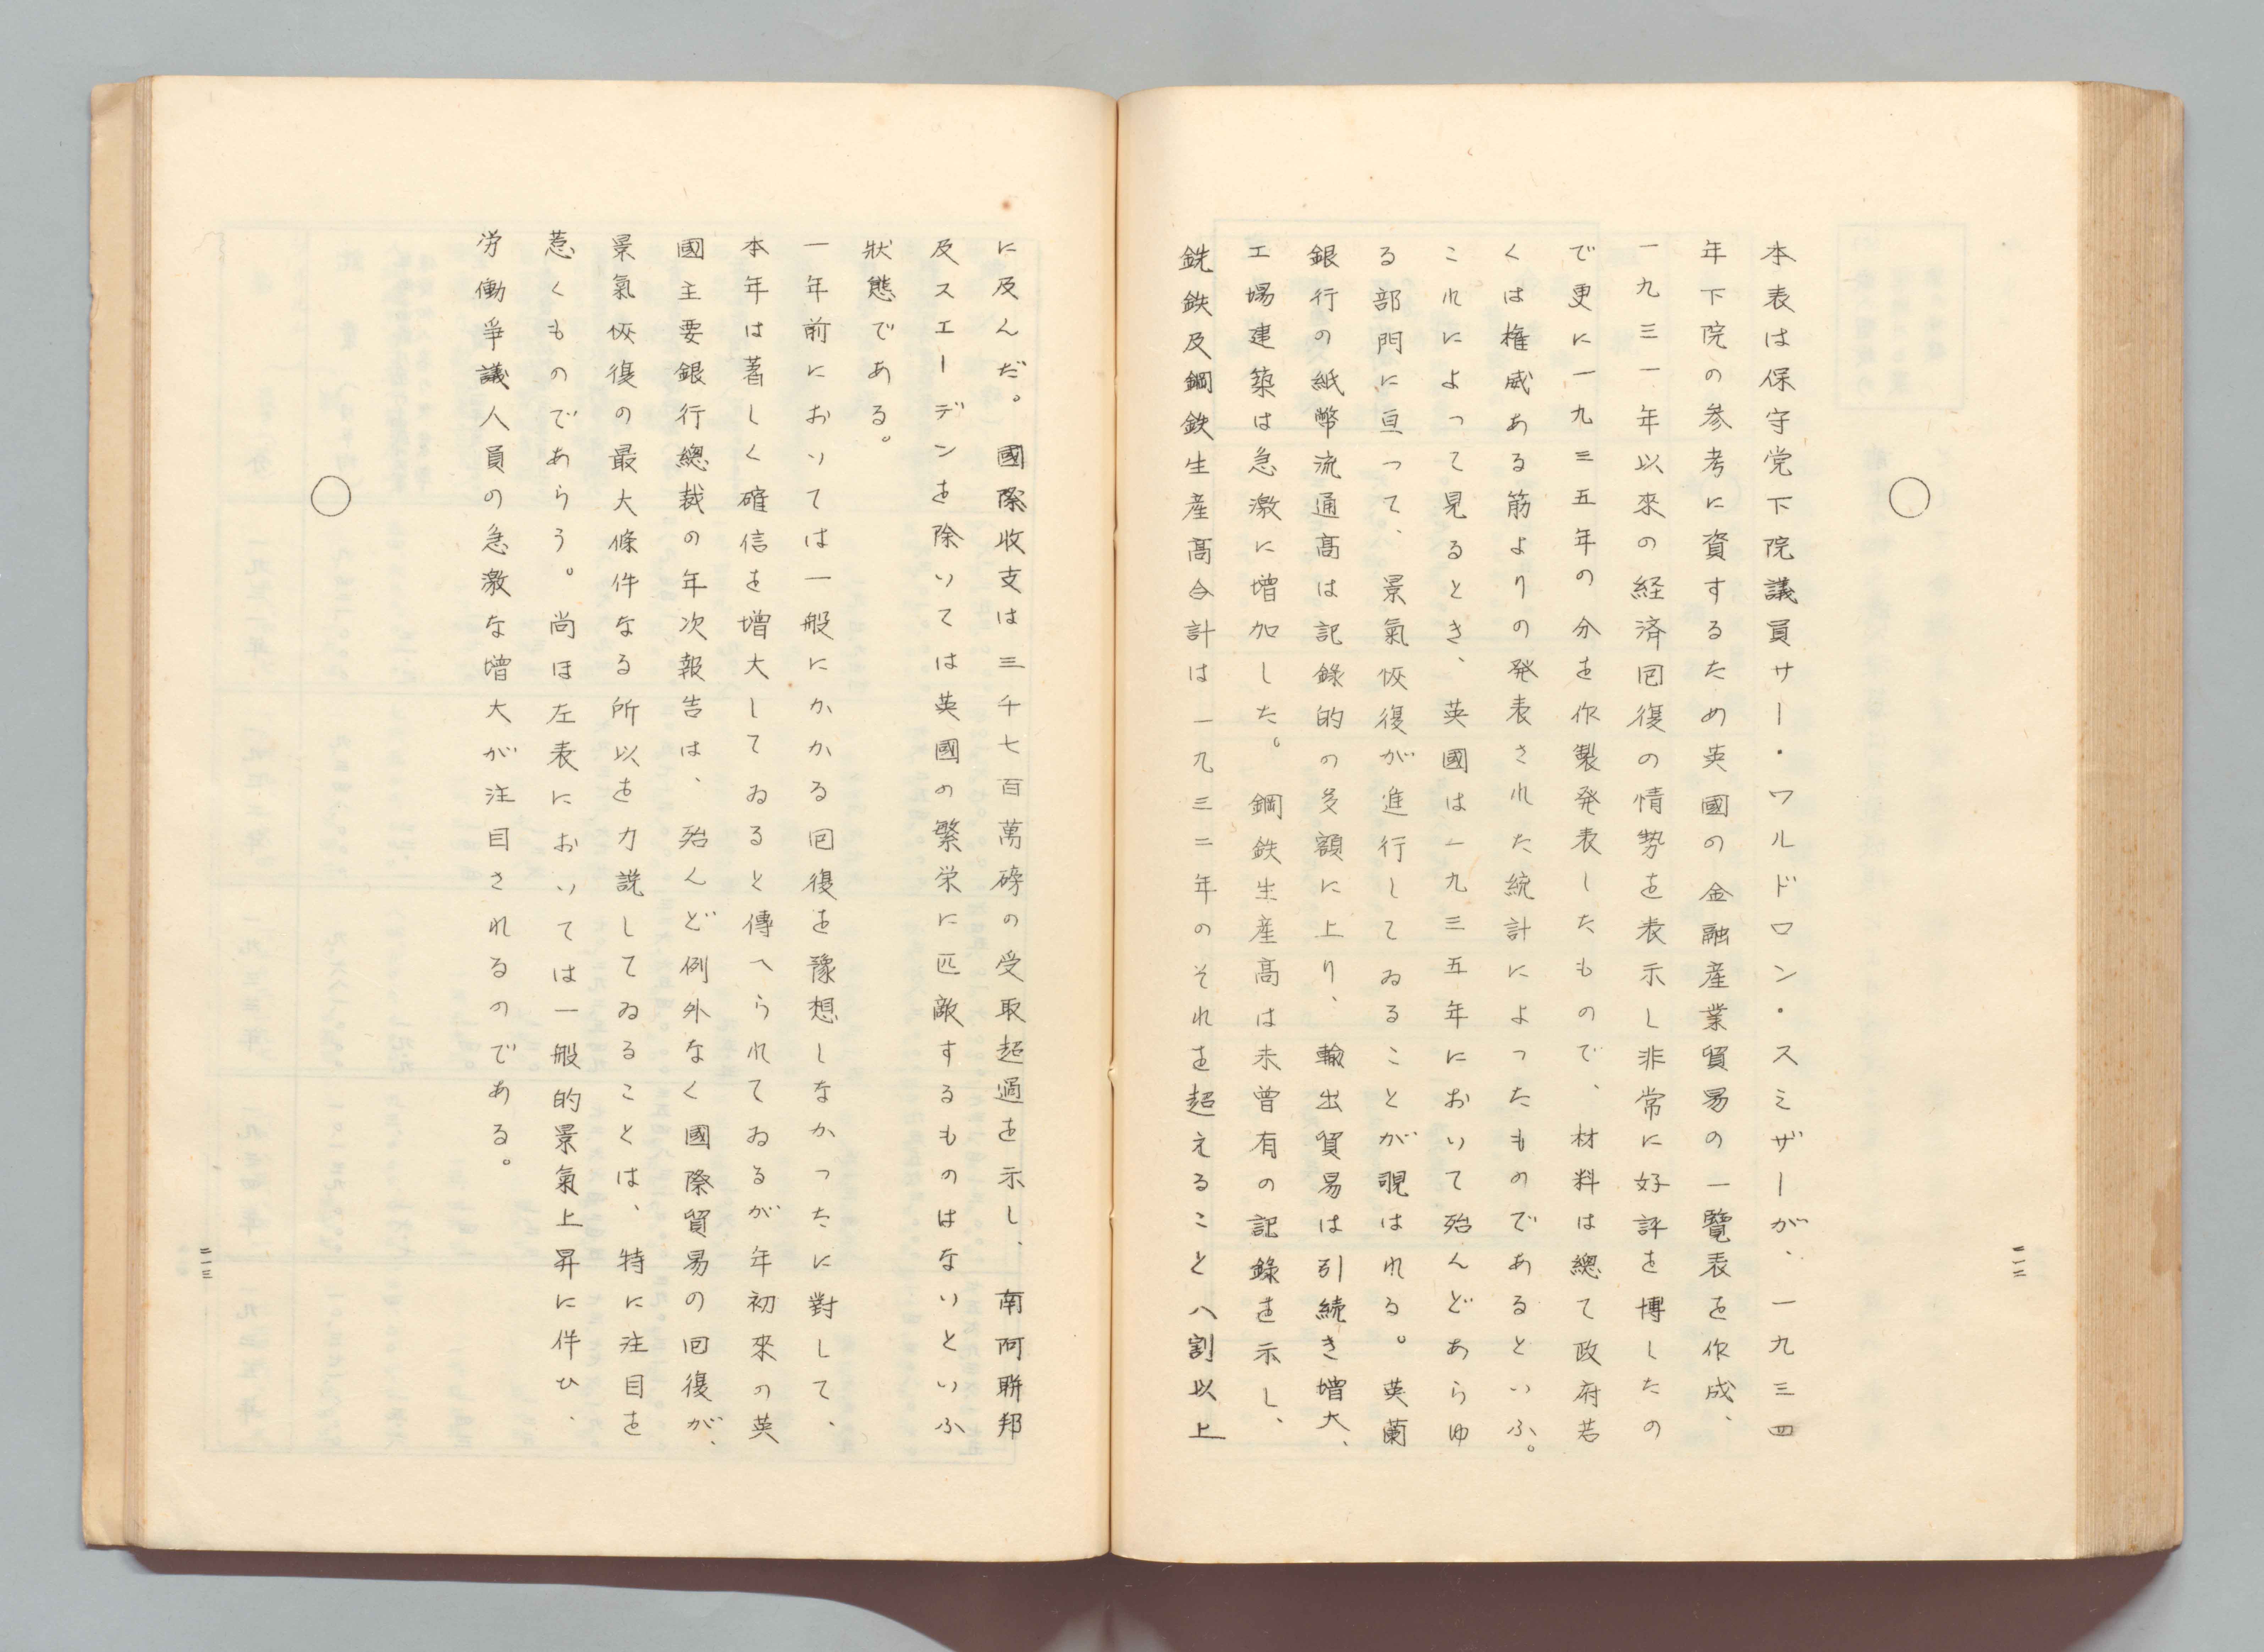 二一二
○
本表は保守党下院議員サー・ワルドロン・スミザーが、一九三四
年下院の参考に資するため英國の金融産業貿易の一覽表を作成、
一九三一年以來の経済囘復の情勢を表示し非常に好評を博したの
で更に一九三五年の分を作製発表したもので、材料は總て政府若
くは権威ある筋よりの発表された統計によったものであるといふ。
これによって見るとき、英國は一九三五年において殆んどあらゆ
る部門に亘って、景氣恢復が進行してゐることが覗はれる。英蘭
銀行の紙幣流通高は記錄的の多額に上り、輸出貿易は引続き増大、
工場建築は急激に増加した。鋼鉄生産高は未曾有の記錄を示し、
銑鉄及鋼鉄生産高合計は一九三二年のそれを超えること八割以上
に及んだ。國際收支は三千七百萬磅の受取超過を示し、南阿聨邦
及スエーデンを除いては英國の繁栄に匹敵するものはないといふ
狀態である。
一年前においては一般にかかる囘復を豫想しなかったに對して、
本年は著しく確信を増大してゐると傳へられてゐるが年初來の英
國主要銀行總裁の年次報告は、殆んど例外なく國際貿易の回復が、
景氣恢復の最大條件なる所以を力説してゐることは、特に注目を
惹くものであらう。尚ほ左表においては一般的景氣上昇に件ひ、
労働爭議人員の急激な増大が注目されるのである。
○
二一三